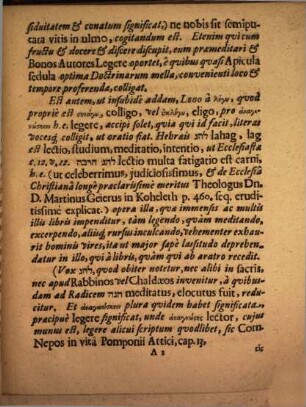 siduitatem & conatum significat,) ne nobis sit semiputata vitis in ulmo, cogitandum est. Etenim qui cum
fructu & docere & discere discupit, eum præmeditari &
Bonos Autores Legere oportet, è quibus quasi Apicula
sedula optima Doctrinarum mella, convenienti loco &
tempore proferenda, colligat.
Est autem, ut insubidè addam, Lego à λέγω, quod
proprie est colligo, vel eligo, pro
h. e. legere, accipi solet, quia qui id facit, literas
vocesq́; colligit, ut oratio fiat. Hebræis להג lahag, lag
est lectio, studium, meditatio, intentio, ut Ecclesiastæ
c. 12, v. 12. להג הרבה lectio multa fatigatio est carni,
h. e. (ut celeberrimus, judiciosissimus, & de Ecclesia
Christiana longè præclarissimè meritus Theologus Dn.
D. Martinus Geierus in Koheleth p. 460, seq. eruditissimè explicat.) opera illa, quæ immensis ac multis
illis libris impenditur, tàm legendo, quàm meditando,
excerpendo, aliisq́; rursus inculcando, vehementer exhaurit hominis vires, ita ut major sæpè lassitudo deprehendatur in illo, qui à libris, quàm qui ab aratro recedit.
(Vox להג, quod obiter notetur, nec alibi in sacris,
nec apud Rabbinos vel Chaldæos invenitur, à quibusdam ad Radicem הגה meditatus, elocutus fuit, reducitur. Et plura quidem habet significata,
præcipuè legere significat, unde lector, cujus
munus est, legere alicui scriptum quodlibet, sic Corn.
Nepos in vitâ Pomponii Attici, cap. 13,
A 2 sic